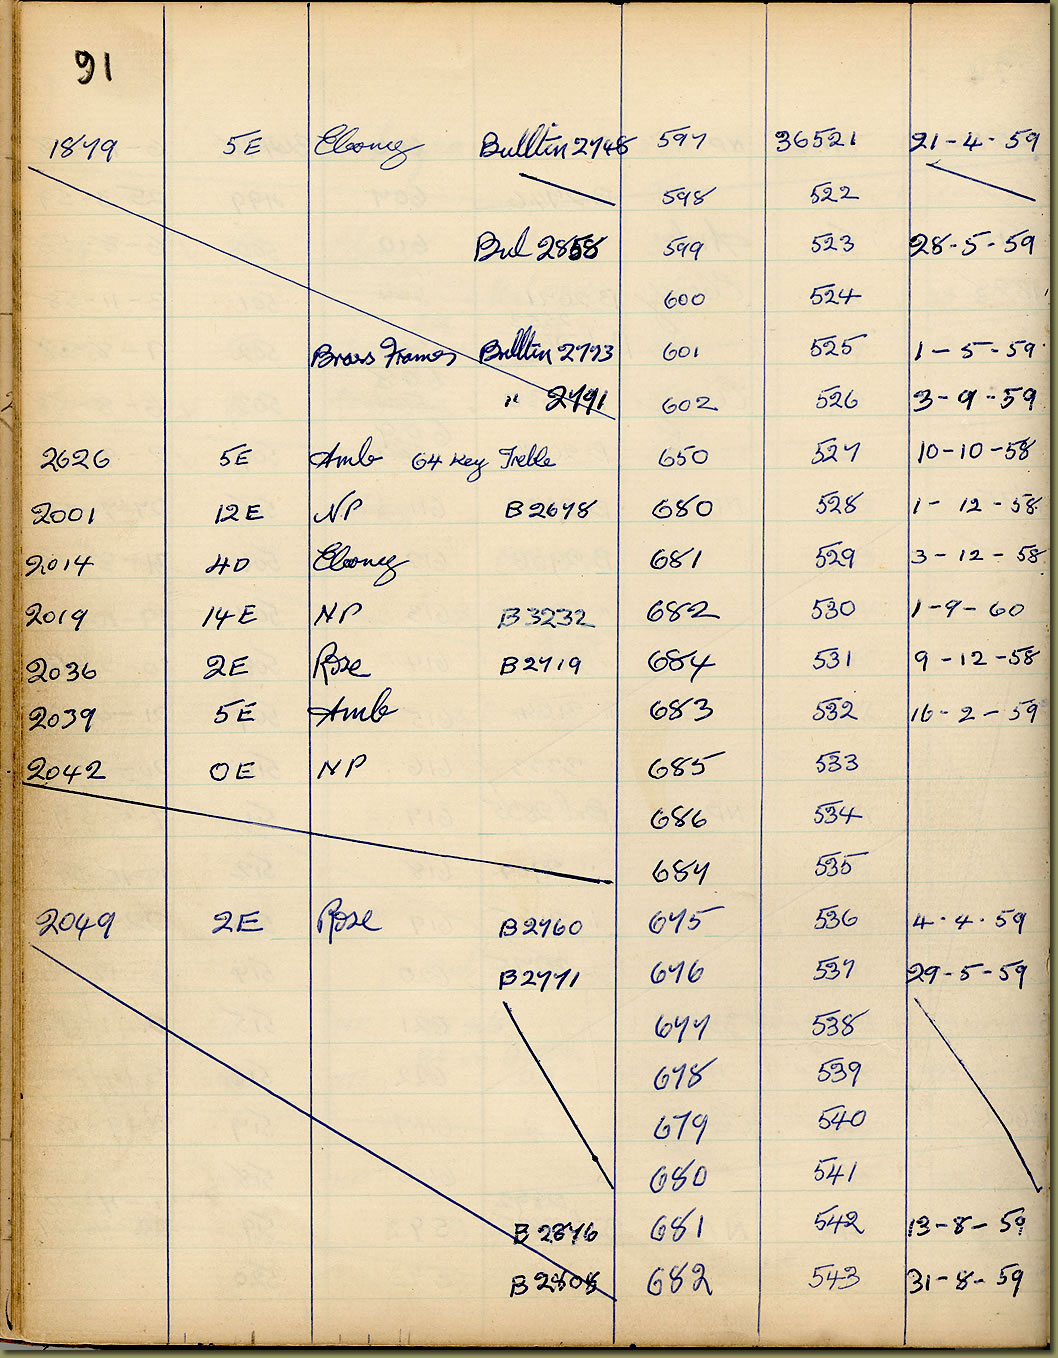 91
1879 5E Ebony Bulltin 2748 597 36521 21-4-59
598 522
Bul 2858 599 523 28-5-59
600 524
Brass Frames Bulltin 2773 601 525 1-5-59
" 2791 602 526 3-9-59
2626 5E Amb 64 Key Treble 650 527 10-10-58
2001 12E NP B2678 680 528 1-12-58
2014 40 Ebony 681 529 3-12-58
2019 14E NP B3232 682 530 1-9-60
2036 2E Rose B2719 684 531 9-12-58
2039 5E Amb 683 532 16-2-59
2042 0E NP 685 533
686 534
687 535
2049 2E Rose B2760 675 536 4.4.59
B2771 676 537 29-5-59
677 538
678 539
679 540
680 541
B2876 681 542 13-8-59
B2808 682 543 31-8-59